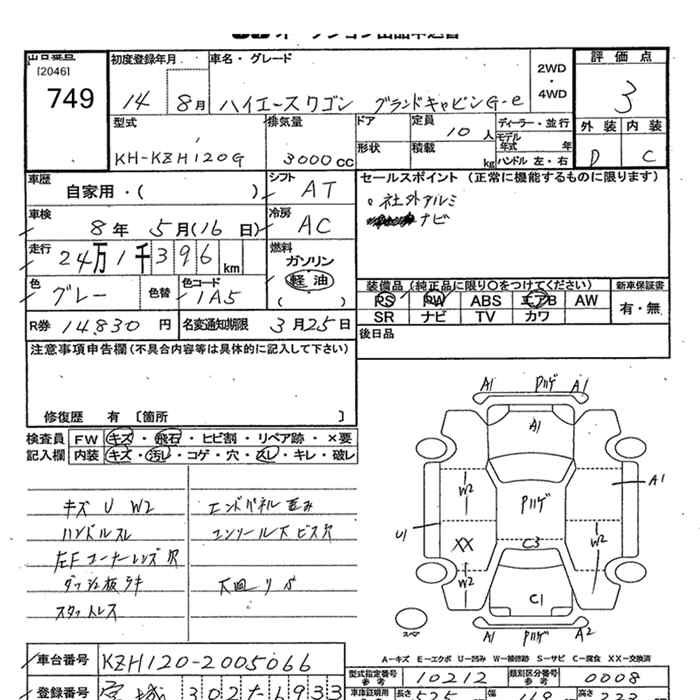 出品番号
[2046]
749
初度登録年月
14 8月
車名・グレード
ハイエースワゴン グランドキャビンG-e
2WD
・
4WD
評価点
3
外装 内装
D C
型式
KH-KZH120G
排気量
3000cc
ドア
定員 10人
形状
積載 kg
ディーラー・並行
モデル年式 年
ハンドル 左・右
車歴
自家用・( )
シフト
AT
セールスポイント (正常に機能するものに限ります)
○社外アルミ
ナビ
車検
8年 5月(16日)
冷房
AC
走行
24万1千396km
燃料
ガソリン
軽油
( )
色
グレー
色替
色コード
1A5
装備品 (純正品に限り○をつけてください)
PS PW ABS エアB AW
SR ナビ TV カワ
新車保証書
有・無
R券 14830円
名変通知期限 3月25日
後日品
注意事項申告欄(不具合内容等は具体的に記入して下さい)
修復歴 有 [箇所 ]
検査員記入欄
FW キズ・飛石・ヒビ割・リペア跡・×要
内装 キズ・汚レ・コゲ・穴・スレ・キレ・破レ
キズ U W2
ハンドルスレ
左Fコーナーレンズ欠
ダッシュ板ウキ
スタットレス
エンドパネル歪み
コンソール下ビス穴
下回りS
A1 Pハゲ A1
A1
W2
Pハゲ
A1
U1
XX
C3
W2
W2
C1
スペア
A1 Pハゲ A2
A-キズ E-エクボ U-凹み W-補修跡 S-サビ C-腐食 XX-交換済
車台番号 KZH120-2005066
型式指定番号参考 10212
類別区分番号参考 0008
登録番号 宮城 302 た 6933
長さ
幅
高さ